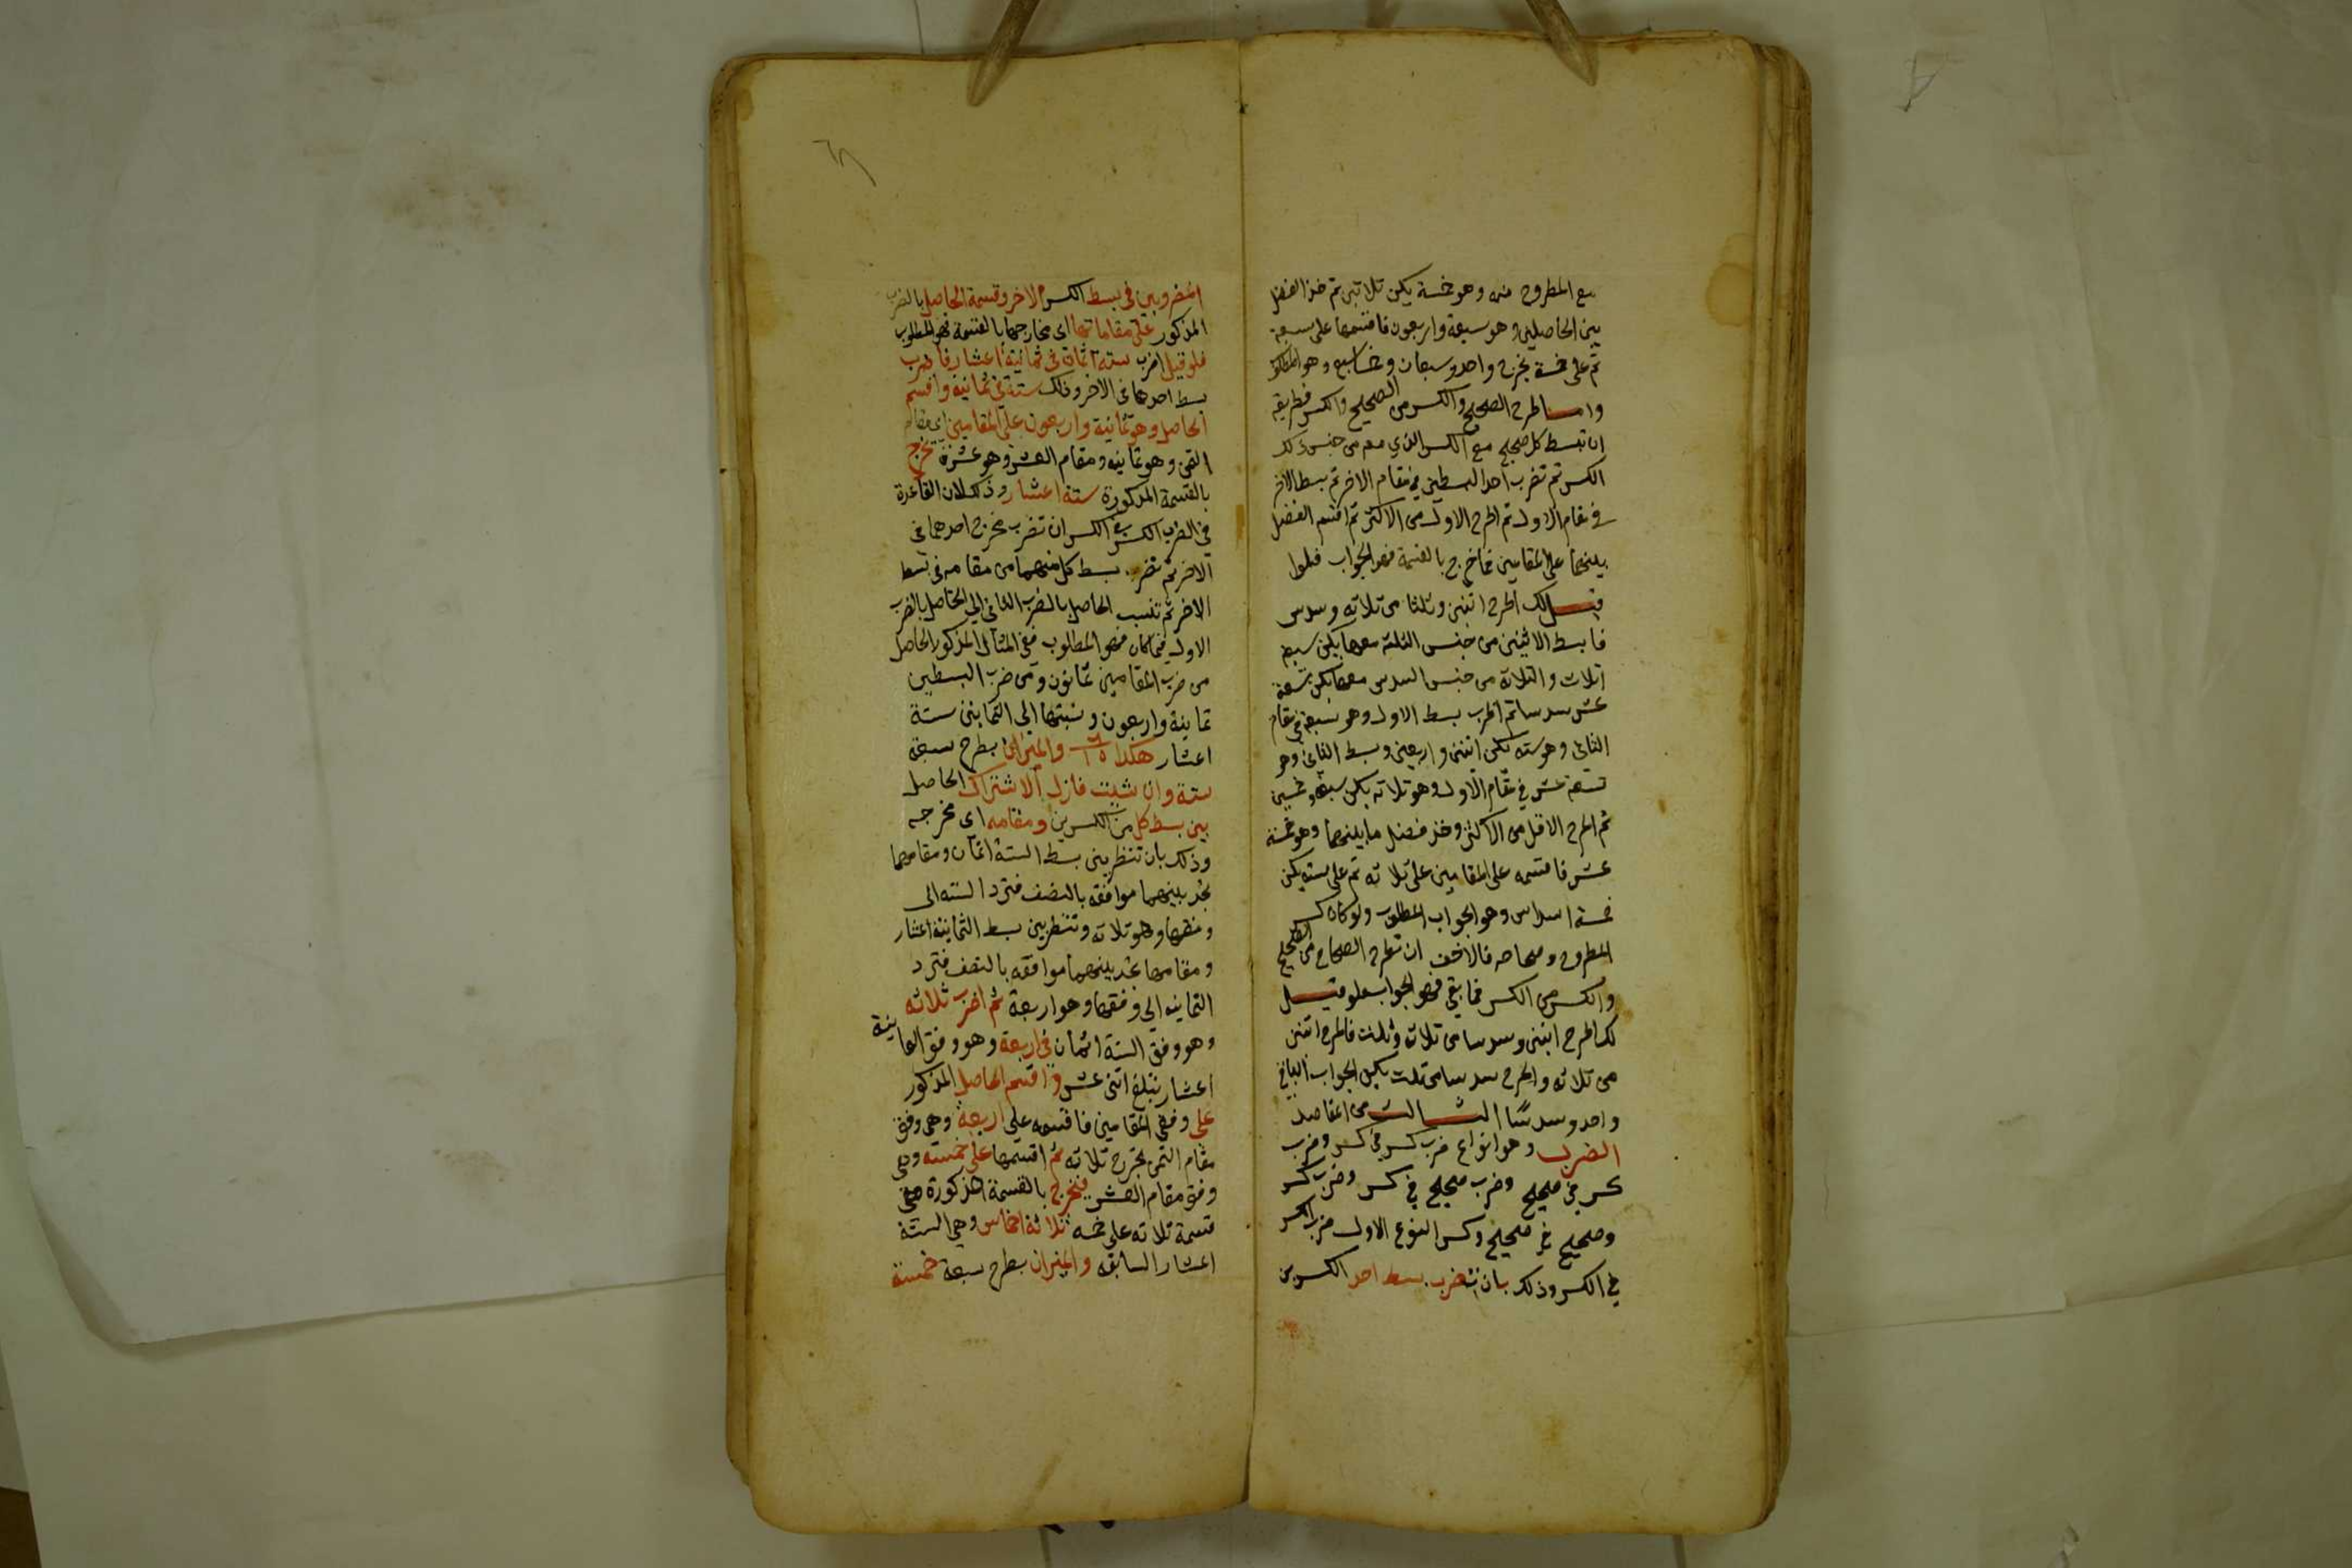 مع المطروح منه وهو خمسة يكن ثلاثين ثم خذ الفضل
بين الحاصلين وهو سبعة واربعون فاقسمها على سبعة
ثم على خمسة يخرج واحد وسبعان وخمسا سبع وهو المطلوب
واما طرح الصحيح والكسر من الصحيح والكسر فطريقه
ان تبسط كل صحيح مع الكسر الذي معه من جنس ذلك
الكسر ثم تضرب احد البسطين في مقام الاخر ثم بسط الاخر
في مقام الاول ثم اطرح الاول من الاكثر ثم اقسم الفضل
بينهما على المقامين فما خرج بالقسمة فهو الجواب فلو
قيل لك اطرح اثنين وثلثا من ثلاثه وسدس
فابسط الاثنين من جنس الثلث معها يكن سبعه
اثلاث والثلاثة من جنس السدس معها يكن تسعة
عشر سدسا ثم اضرب بسط الاول وهو سبعة في مقام
الثاني وهو سته يكن اثنين واربعين وبسط الثاني وهو
تسعة عشر في مقام الاول وهو ثلاثه يكن سبعه وخمسين
ثم اطرح الاقل من الاكثر وخذ فضل ما بينهما وهو خمسة
عشر فاقسمه على المقامين على ثلاثه ثم على سته يكن
خمسة اسداس وهو الجواب المطلوب ولو كان كسر
المطروح وصحاحه فالاخف ان تطرح الصحاح من الصحيح
والكسر من الكسر فما بقي فهو الجواب فلو قيل
لك اطرح اثنين وسدسا من ثلاث وثلث فاطرح اثنين
من ثلاثه واطرح سدسا من ثلث يكون الجواب الباقي
واحد وسدسا الثالث من المقاصد
الضرب وهو انواع ضرب كسر في كسر وضرب
كسر في صحيح وضرب صحيح في كسر وضرب كسر
وصحيح في صحيح وكسر النوع الاول ضرب الكسر
في الكسر وذلك بان تضرب بسط احد الكسرين
المضروبين في بسط الكسر الاخر وقسمة الحاصل بالضرب
المذكور على مقاماتهما اي مخارجهما بالقسمة فهو المطلوب
فلو قيل اضرب ستة اثمان في ثمانية اعشار فاضرب
بسط احدهما في الاخر وذلك ستة في ثمانية واقسم
الحاصل وهو ثمانية واربعون على المقامين اي مقام
الثمن وهو ثمانيه ومقام العشر وهو عشرة يخرج
بالقسمة المذكورة ستة اعشار وذلك لان القاعدة
في الضرب الكسر في الكسر ان تضرب مخرج احدهما في
الاخر ثم تضرب بسط كل منهما من مقامه في بسط
الاخر ثم تنسب الحاصل بالضرب الثاني الي الحاصل بالضرب
الاول فما كان فهو المطلوب ففي المثال المذكور الحاصل
من ضرب المقامين ثمانون ومن ضرب البسطين
ثمانية واربعون ونسبتها الي الثمانين ستة
اعشار هكذا والميزان بطرح سبعة
ستة وان شيت فازل الاشتراك الحاصل
بين بسط كل من الكسرين ومقامه اي مخرجه
وذلك بان تنظر بين بسط الستة اثمان ومقامهما
تجد بينهما موافقه بالنصف فترد السته الى
وفقها وهو ثلاثه وتنظر بين بسط الثمانية اعشار
ومقامها تجد بينهما موافقه بالنصف فترد
الثمانيه الي وفقها وهو اربعة ثم اضرب ثلاثه
وهو وفق الستة اثمان في اربعة وهو وفق الثمانية
اعشار يبلغ اثنى عشر واقسم الحاصل المذكور
على وفقي المقامين فاقسمه على اربعة وهي وفق
مقام الثمن يخرج ثلاثه ثم اقسمها على خمسة وهي
وفق مقام العشر فيخرج بالقسمة المذكورة
قسمة ثلاثه على خمسه ثلاثة اخماس وهي الستة
اعشار السابقه والميزان بطرح سبعة خمسة